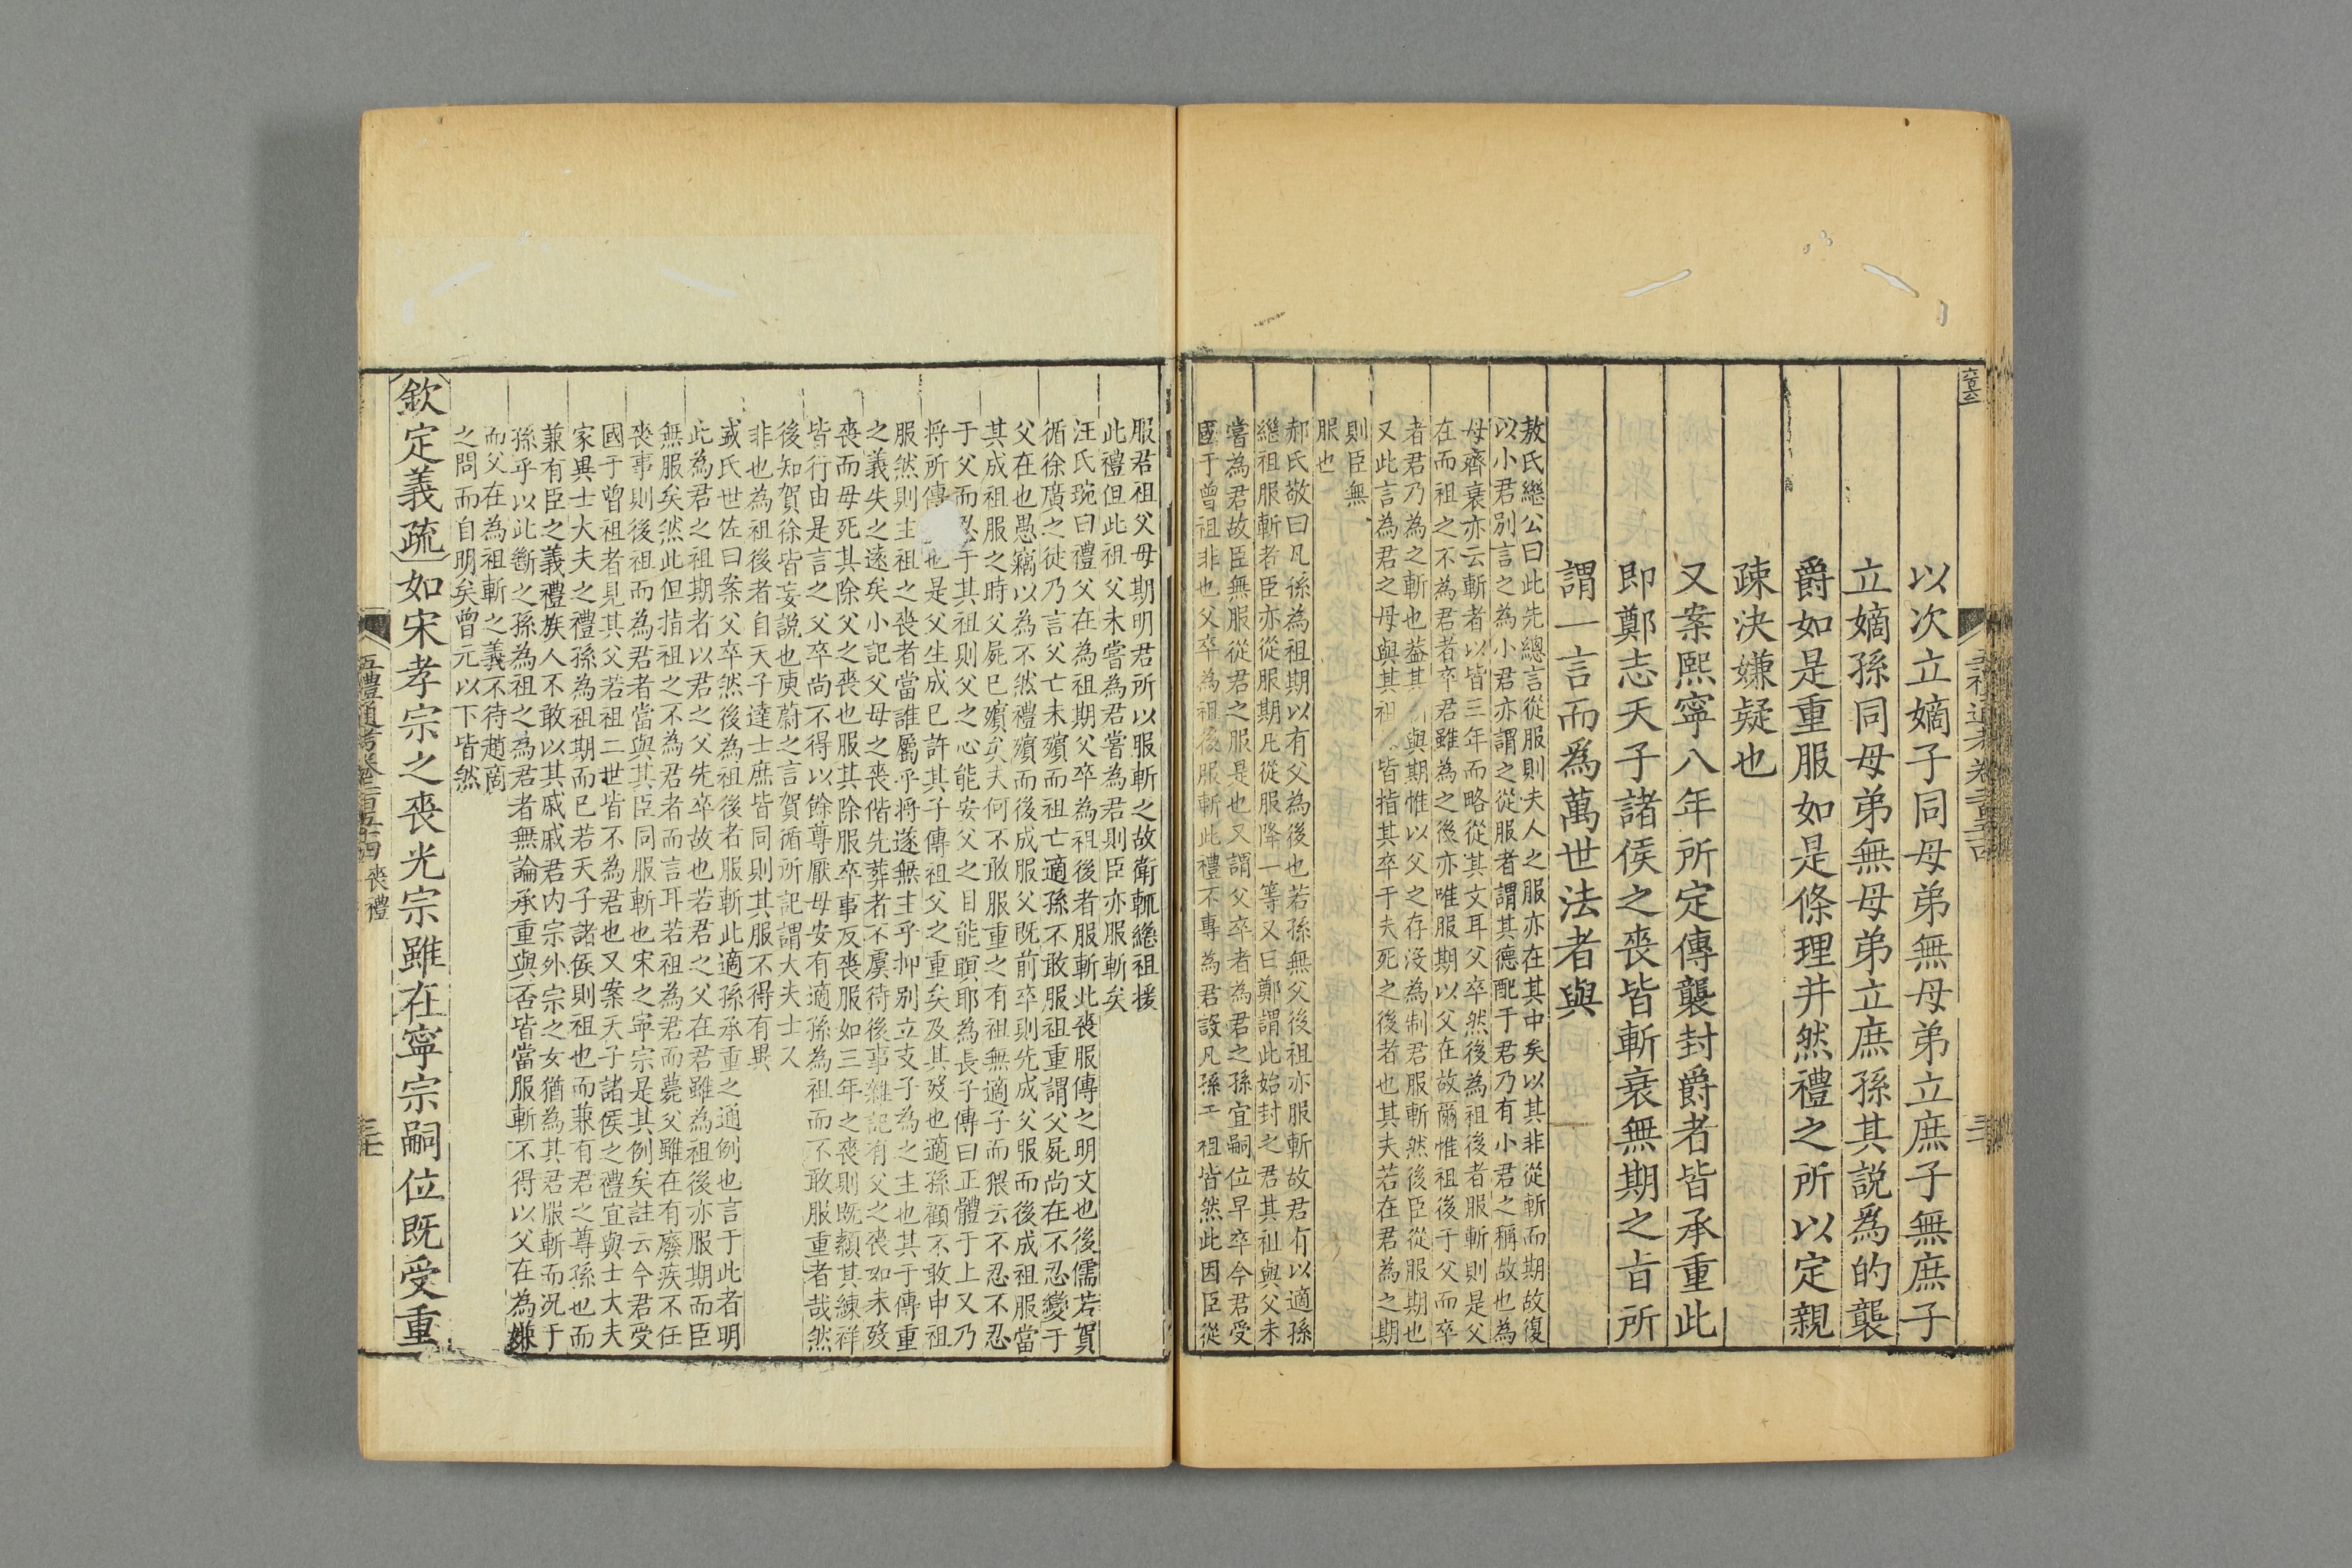 以次立嫡子同母弟無母弟立庶子無庶子
立嫡孫同母弟無母弟立庶孫其説爲的襲
爵如是重服如是條理井然禮之所以定親
疎決嫌疑也
又案熙寧八年所定傳襲封爵者皆承重此
即鄭志天子諸侯之喪皆斬衰無期之旨所
謂一言而爲萬世法者與
敖氏繼公曰此先總言從服則夫人之服亦在其中矣以其非從斬而期故復
以小君别言之為小君亦謂之從服者謂其德配于君乃有小君之稱故也為
母齊衰亦云斬者以皆三年而略從其文耳父卒然後為祖後者服斬則是父
在而祖之不為君者卒君雖為之後亦唯服期以父在故爾惟祖後于父而卒
者君乃為之斬也葢其與期惟以父之存沒為制君服斬然後臣從服期也
又此言為君之母與其祖皆指其卒于夫死之後者也其夫若在君為之期
則臣無
服也
郝氏敬曰凡孫為祖期以有父為後也若孫無父後祖亦服斬故君有以適孫
繼祖服斬者臣亦從服期凡從服降一等又曰鄭謂此始封之君其祖與父未
嘗為君故臣無服從君之服是也又謂父卒者為君之孫宜嗣位早卒今君受
國于曾祖非也父卒為祖後服斬此禮不專為君設凡孫于祖皆然此因臣從
服君祖父母期明君所以服斬之故衛輒繼祖援
此禮但此祖父未嘗為君嘗為君則臣亦服斬矣
汪氏琬曰禮父在為祖期父卒為祖後者服斬此喪服傳之明文也後儒若賀
循徐廣之徒乃言父亡未殯而祖亡適孫不敢服祖重謂父屍尚在不忍變于
父在也愚竊以為不然禮殯而後成服父既前卒則先成父服而後成祖服當
其成祖服之時父屍已殯矣夫何不敢服重之有祖無適子而猥云不忍不忍
于父而忍于其祖則父之心能安父之目能瞑耶為長子傳曰正體于上又乃
將所傳也是父生成已許其子傳祖父之重矣及其殁也適孫顧不敢申祖
服然則主祖之喪者當誰屬乎將遂無主乎抑别立支子為之主也其于傳重
之義失之遠矣小記父母之喪偕先葬者不虞待後事雜記有父之喪如未殁
喪而母死其除父之喪也服其除服卒事反喪服如三年之喪則既顈其練祥
皆行由是言之父卒尚不得以餘尊厭母安有適孫為祖而不敢服重者哉然
後知賀徐皆妄説也庾蔚之言賀循所記謂大夫士又
非也為祖後者自天子達士庶皆同則其服不得有異
盛氏世佐曰案父卒然後為祖後者服斬此適孫承重之通例也言于此者明
此為君之祖期者以君之父先卒故也若君之父在君雖為祖後亦服期而臣
無服矣然此但指祖之不為君者而言耳若祖為君而薨父雖在有廢疾不任
喪事則後祖而為君者當與其臣同服斬也宋之寧宗是其例矣註云今君受
國于曾祖者見其父若祖二世皆不為君也又案天子諸侯之禮宜與士大夫
家異士大夫之禮孫為祖期而已若天子諸侯則祖也而兼有君之尊孫也而
兼有臣之義禮族人不敢以其戚戚君内宗外宗之女猶為其君服斬而况于
孫乎以此斷之孫為祖之為君者無論承重與否皆當服斬不得以父在為嫌
而父在為祖斬之義不待趙商
之問而自明矣曾元以下皆然
欽定義疏如宋孝宗之喪光宗雖在寧宗嗣位既受重
五禮通考卷二百五十四 喪禮